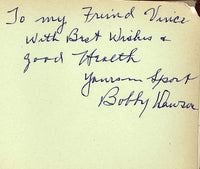 To my Freind Vince
With Best Wishes &
good Health
Yours in Sport
Bobby Dawson